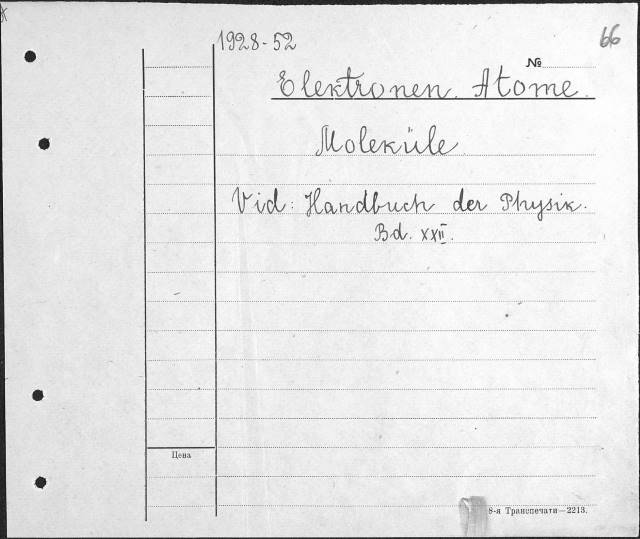 1928-52
66
№
Elektronen. Atome.
Moleküle
Vid: Handbuch der Physik.
Bd. XXII.
Цена
8-я Транспечати—2213.